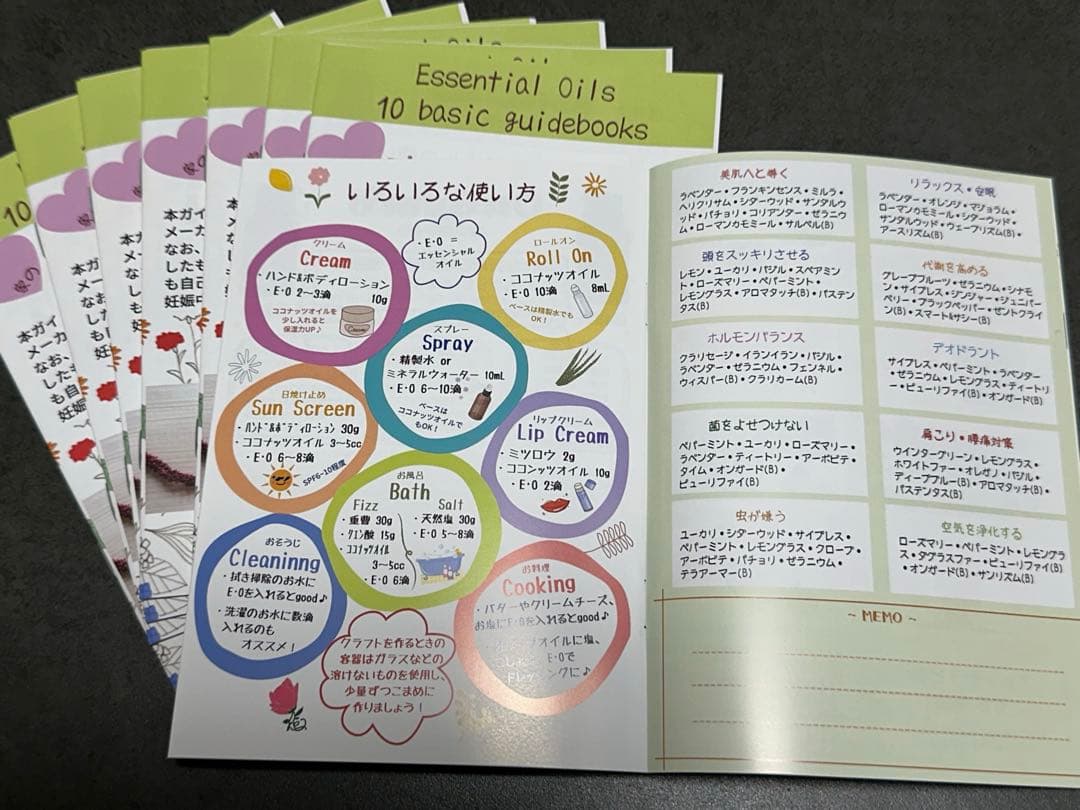 Essential Oils
10 basic guidebooks
10
本ガイ
メーカ
なお、
したも
も自己
妊娠中
いろいろな使い方
クリーム
Cream
・ハンド&ボディローション
10g
・E・O 2〜3滴
ココナッツオイルを
少し入れると
保湿力UP♪
・E・O =
エッセンシャル
オイル
ロールオン
Roll On
・ココナッツオイル
8mL
・E・O 10滴
ベースは精製水でも
OK!
スプレー
Spray
・精製水 or
ミネラルウォーター 10mL
・E・O 6〜10滴
ベースは
ココナッツオイルで
もOK!
日焼け止め
Sun Screen
・ハンド&ボディローション 30g
・ココナッツオイル 3〜5cc
・E・O 6〜8滴
SPF6〜10程度
リップクリーム
Lip Cream
・ミツロウ 2g
・ココンッツオイル 10g
・E・O 2滴
お風呂
Bath
Fizz
・重曹 30g
・クエン酸 15g
・ココナッツオイル
3〜5cc
・E・O 6滴
Salt
・天然塩 30g
・E・O 5〜8滴
おそうじ
Cleaninng
・拭き掃除のお水に
E・Oを入れるとgood♪
・洗濯のお水に数滴
入れるのも
オススメ!
お料理
Cooking
・バターやクリームチーズ、
お塩にE・Oを入れるとgood♪
オイルに塩、
E・Oで
ングに♪
クラフトを作るときの
容器はガラスなどの
溶けないものを使用し、
少量ずつこまめに
作りましょう!
美肌へと導く
ラベンダー・フランキンセンス・ミルラ・
ヘリクリサム・シダーウッド・サンダルウ
ッド・パチョリ・コリアンダー・ゼラニウ
ム・ローマンカモミール・サルベル(B)
頭をスッキリさせる
レモン・ユーカリ・バジル・スペアミン
ト・ローズマリー・ペパーミント・
レモングラス・アロマタッチ(B)・パステン
タス(B)
ホルモンバランス
クラリセージ・イランイラン・バジル・
ラベンダー・ゼラニウム・フェンネル・
ウィスパー(B)・クラリカーム(B)
菌をよせつけない
ペパーミント・ユーカリ・ローズマリー・
ラベンダー・ティートリー・アーボビテ・
タイム・オンガード(B)・
ピューリファイ(B)
虫が嫌う
ユーカリ・シダーウッド・サイプレス・
ペパーミント・レモングラス・クローブ・
アーボビテ・パチョリ・ゼラニウム・
テラアーマー(B)
リラックス・安眠
ラベンダー・オレンジ・マジョラム・
ローマンカモミール・シダーウッド・
サンダルウッド・ウェーブリズム(B)・
アースリズム(B)
代謝を高める
グレープフルーツ・ゼラニウム・シナモ
ン・サイプレス・ジンジャー・ジュニパー
ベリー・ブラックペッパー・ゼントクライ
ン(B)・スマート&サシー(B)
デオドラント
サイプレス・ペパーミント・ラベンダー
・ゼラニウム・レモングラス・ティートリ
ー・ピューリファイ(B)・オンガード(B)
肩こり・腰痛対策
ウインターグリーン・レモングラス・
ホワイトファー・オレガノ・バジル・
ディープブルー(B)・アロマタッチ(B)・
パステンタス(B)
空気を浄化する
ローズマリー・ペパーミント・レモングラ
ス・ダグラスファー・ピューリファイ(B)
・オンガード(B)・サンリズム(B)
~ MEMO ~